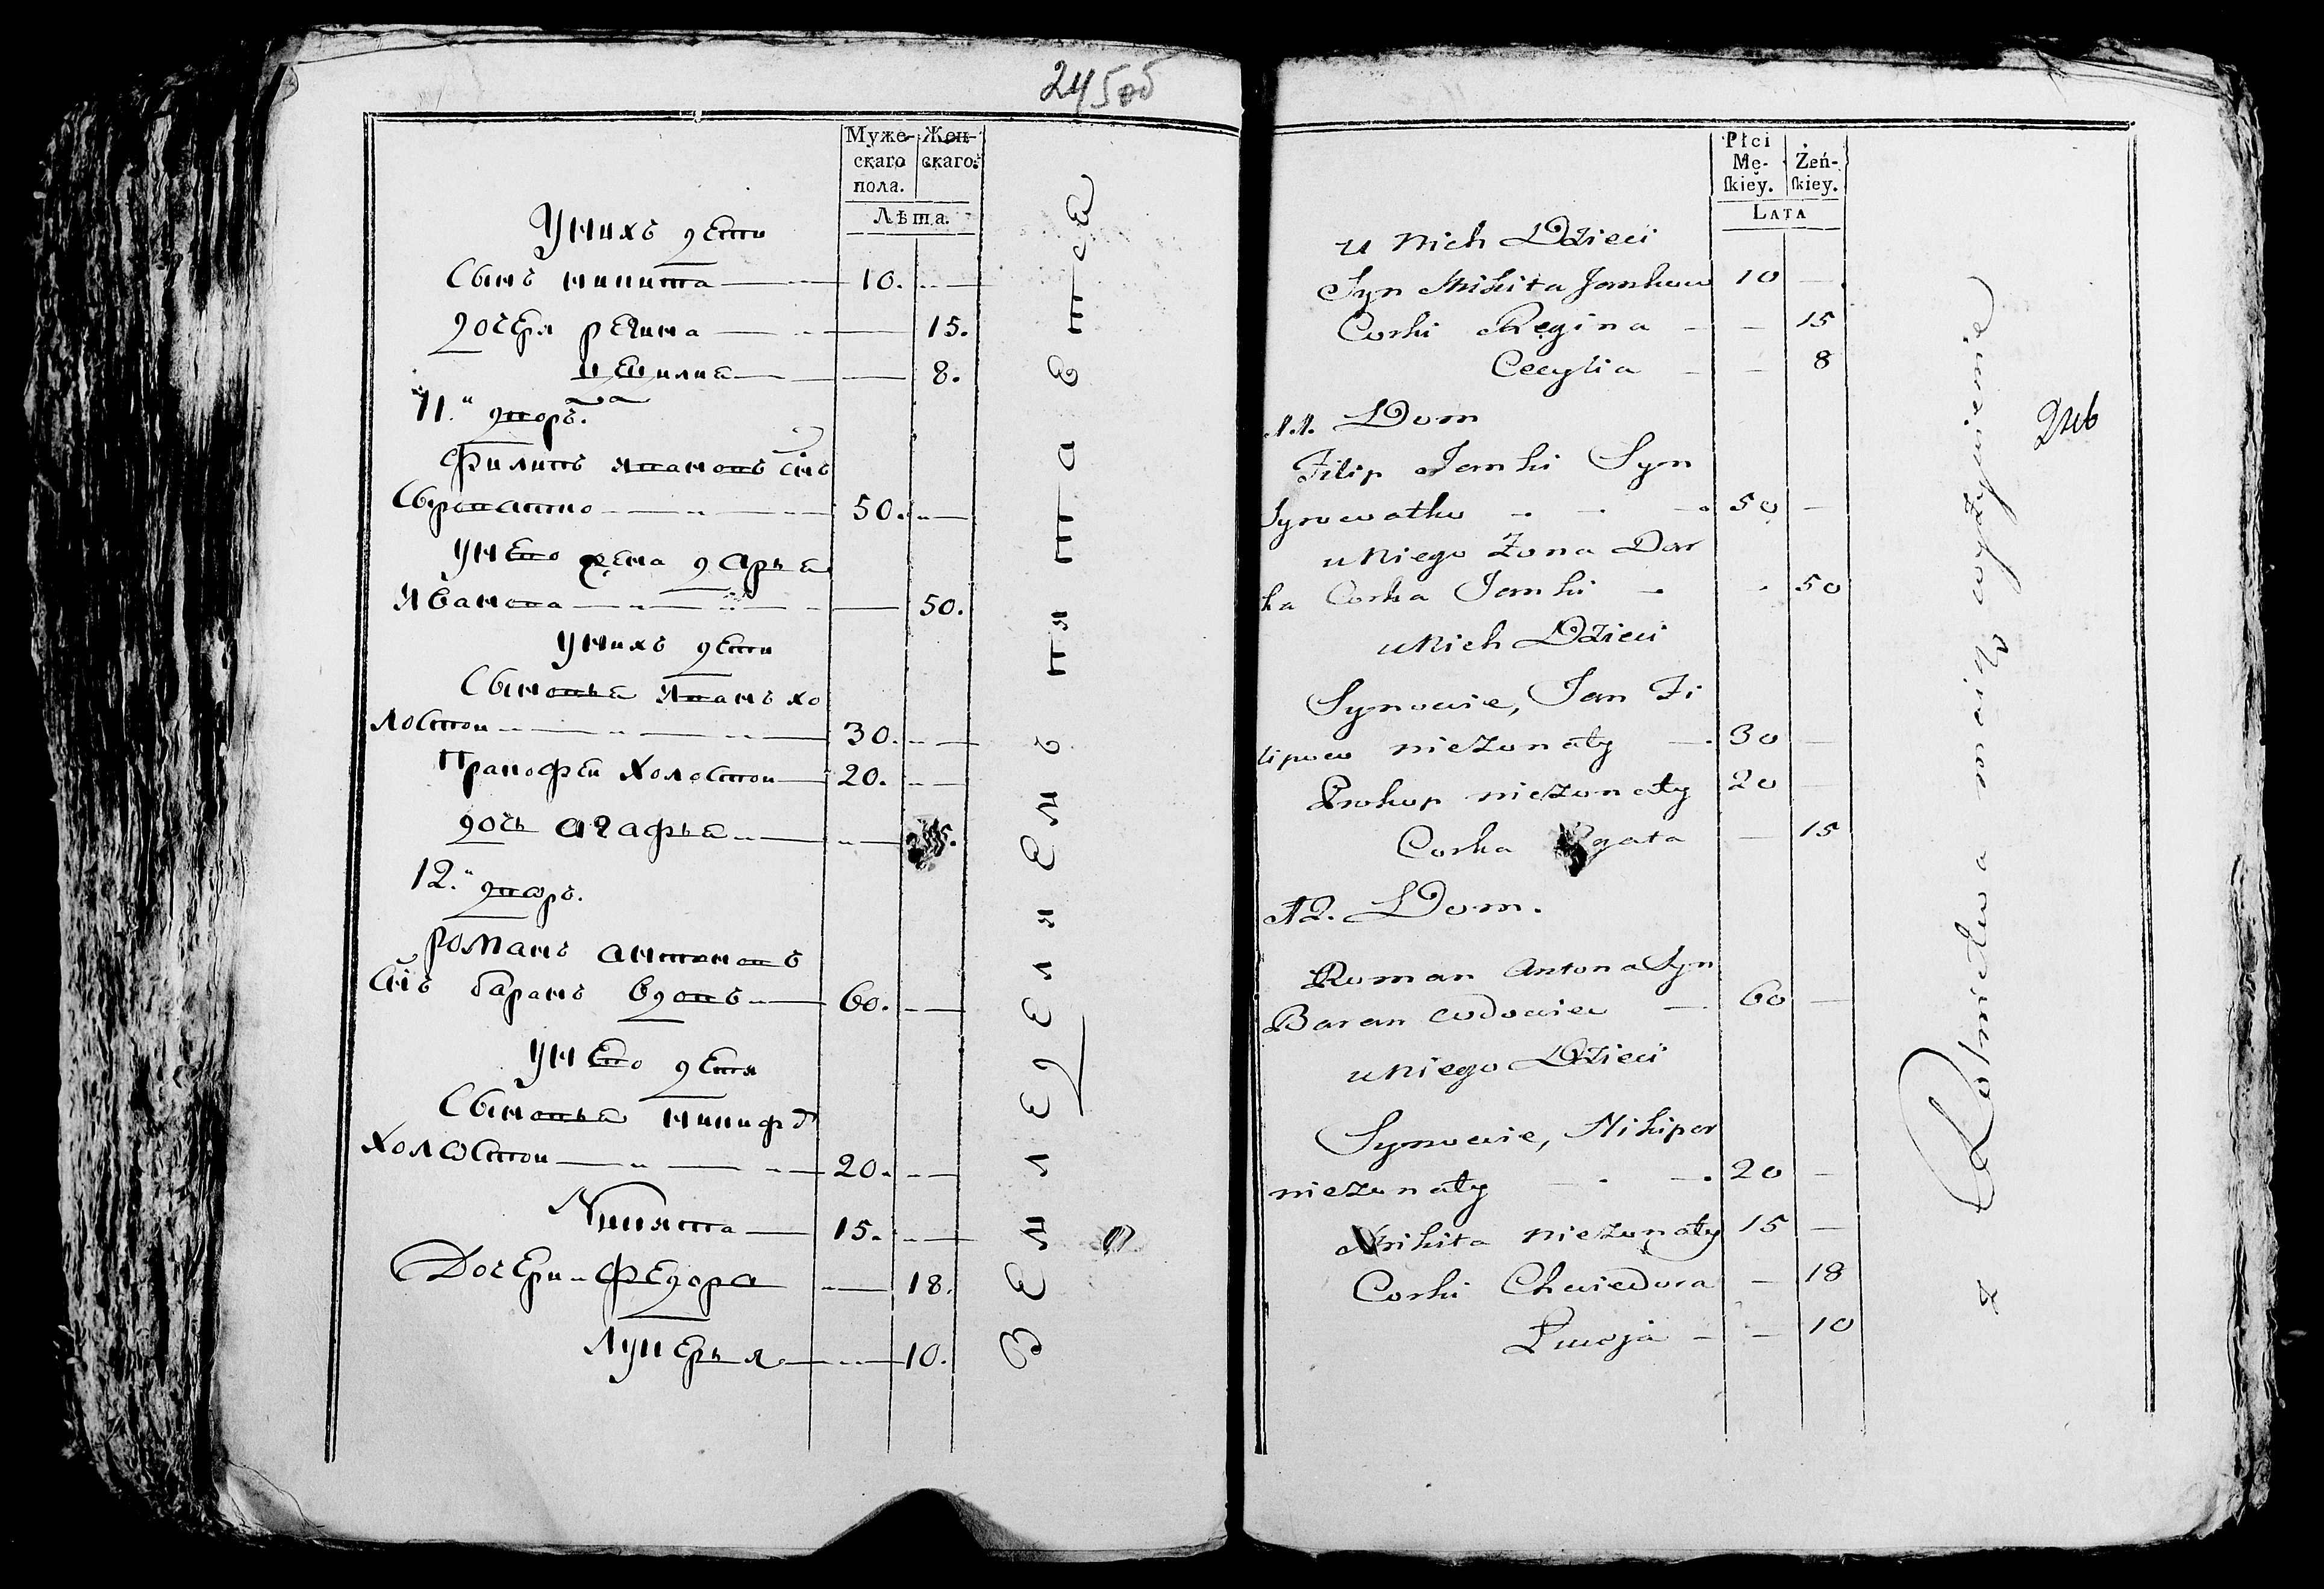 245об
Муже- Жен-
скаго скаго.
пола.
Лѣта.
Унихъ дети
Сынъ никита 10.
дочеря регина 15.
цецилиа 8.
11.й дворъ.
Филипъ Ивановъ снъ
Сыроватко 50.
Унего жена дарьа
Иванова 50.
Унихъ дети
Сыновьа Иванъ хо
лостои 30.
Пракофеи холостои 20.
дочь агафьа 15.
12.й дворъ.
романъ антоновъ
снъ баранъ вдовъ 60.
Унего детя
Сыновьа никифор
холостои 20.
Никита 15.
Дочери федора 18.
Лукерья 10.
Земледелиемъ питается
Płci
Mę- Żeń-
skiey. skiey.
LATA
u Nich Dzieci
Syn Mikita Jankow 10
Corki Regina 15
Cecylia 8
11. Dom
Filip Janki Syn
Syrowatko 50
u Niego Żona Dar
ka Corka Janki 50
u Nich Dzieci
Synowie, Jan Fi
lipow nieżonaty 30
Prokop nieżonaty 20
Corka Agata 15
12. Dom.
Roman Antona Syn
Baran wdowiec 60
u Niego Dzieci
Synowie, Nikipor
nieżonaty 20
Mikita nieżonaty 15
Corki Chwiedora 18
10
z Rolnictwa maią wyżywienie